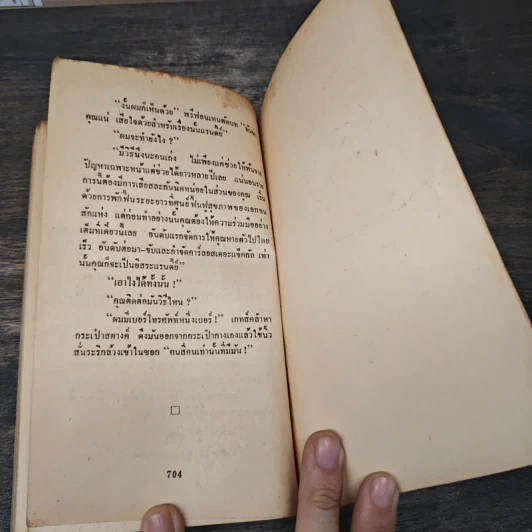 “งั้นผมก็เห็นด้วย” พรีฟอนเทนตัดบท
คุณแน่ เสียใจด้วยสำหรับเรื่องนั้นแรนดีย์”
“ผมจะทำยังไง ?”
“มีวิธีนึงนะคนเก่ง ไม่เพียงแค่ช่วยให้พ้นจาก
ปัญหาเฉพาะหน้าแต่ช่วยได้ยาวหลายปีเลย แน่นอนราย
การนี้ต้องมีการเสียสละกันนิดหน่อยในส่วนของคุณ เริ่ม
ด้วยการพักฟื้นระยะยาวที่ศูนย์ฟื้นฟูสุขภาพของเอกชน
สักแห่ง แต่ก่อนทำอย่างนั้นคุณต้องให้ความร่วมมืออย่าง
เต็มที่เดี๋ยวนี้เลย อันดับแรกจัดการให้คุณหายตัวไปโดย
เร็ว อันดับต่อมา-จับและกำจัดคาร์ลอสเดอะแจ็กกัล เท่า
นั้นคุณก็จะเป็นอิสระแรนดีย์”
“เอาไงได้ทั้งนั้น !”
“คุณติดต่อมันวิธีไหน ?”
“ผมมีเบอร์โทรศัพท์หนึ่งเบอร์ !” เกทส์คลำหา
กระเป๋าสตางค์ ดึงมันออกจากกระเป๋ากางเกงแล้วใช้นิ้ว
สั่นระริกล้วงเข้าไปในซอก “คนสี่คนเท่านั้นที่มีมัน !”
704